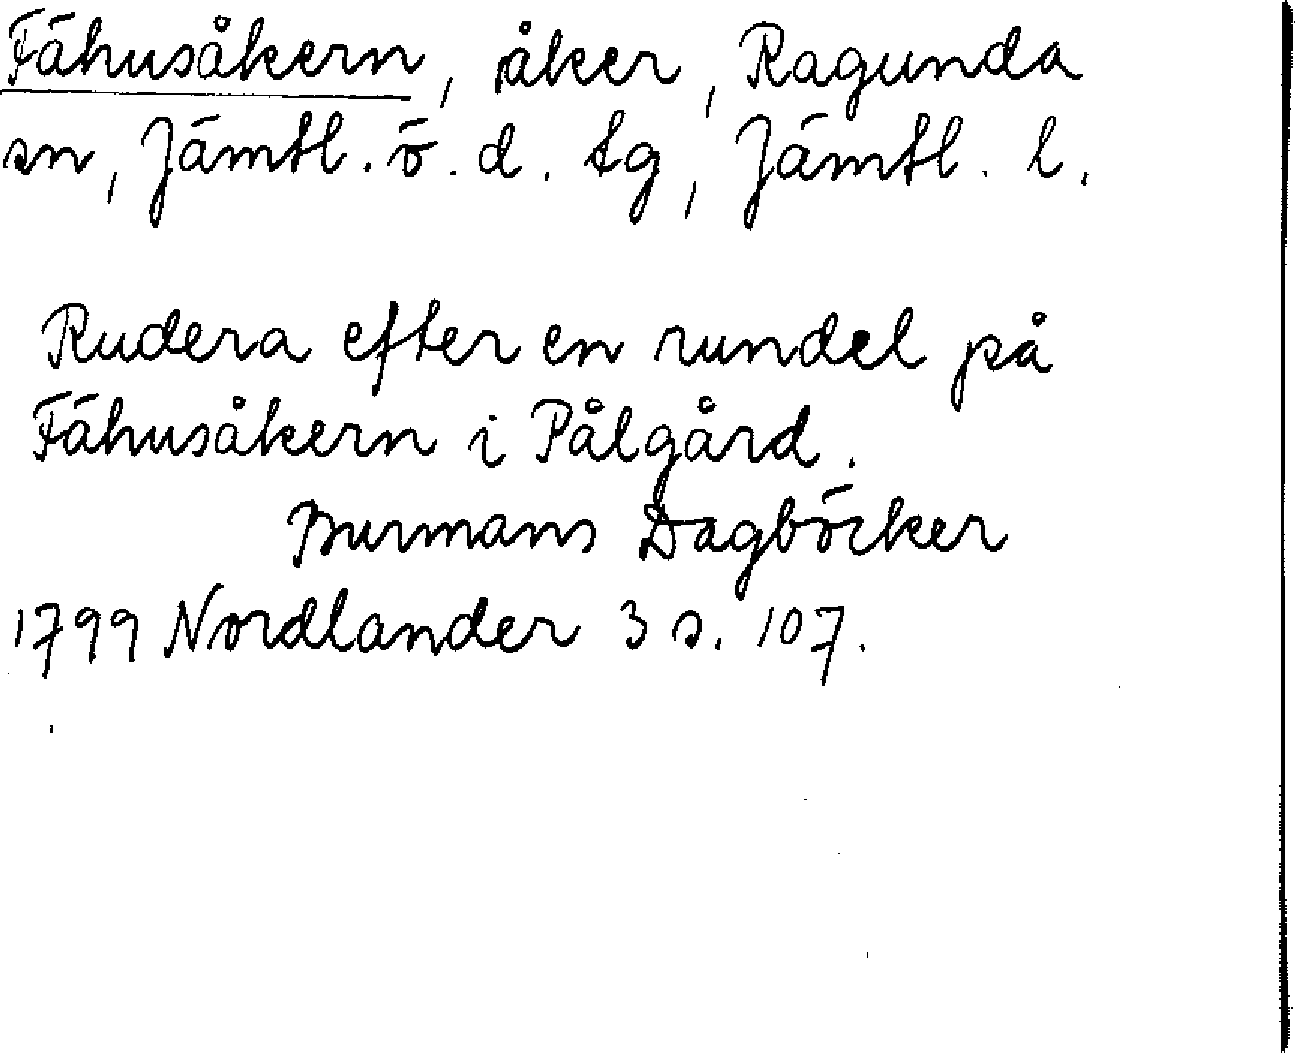 Fähusåkern, åker, Ragunda
sn, Jämtl. ö. d. tg, Jämtl. l.
Rudera efter en rundel på
Fähusåkern i Pålgård.
Burmans Dagböcker
1799 Nordlander 3 s. 107.